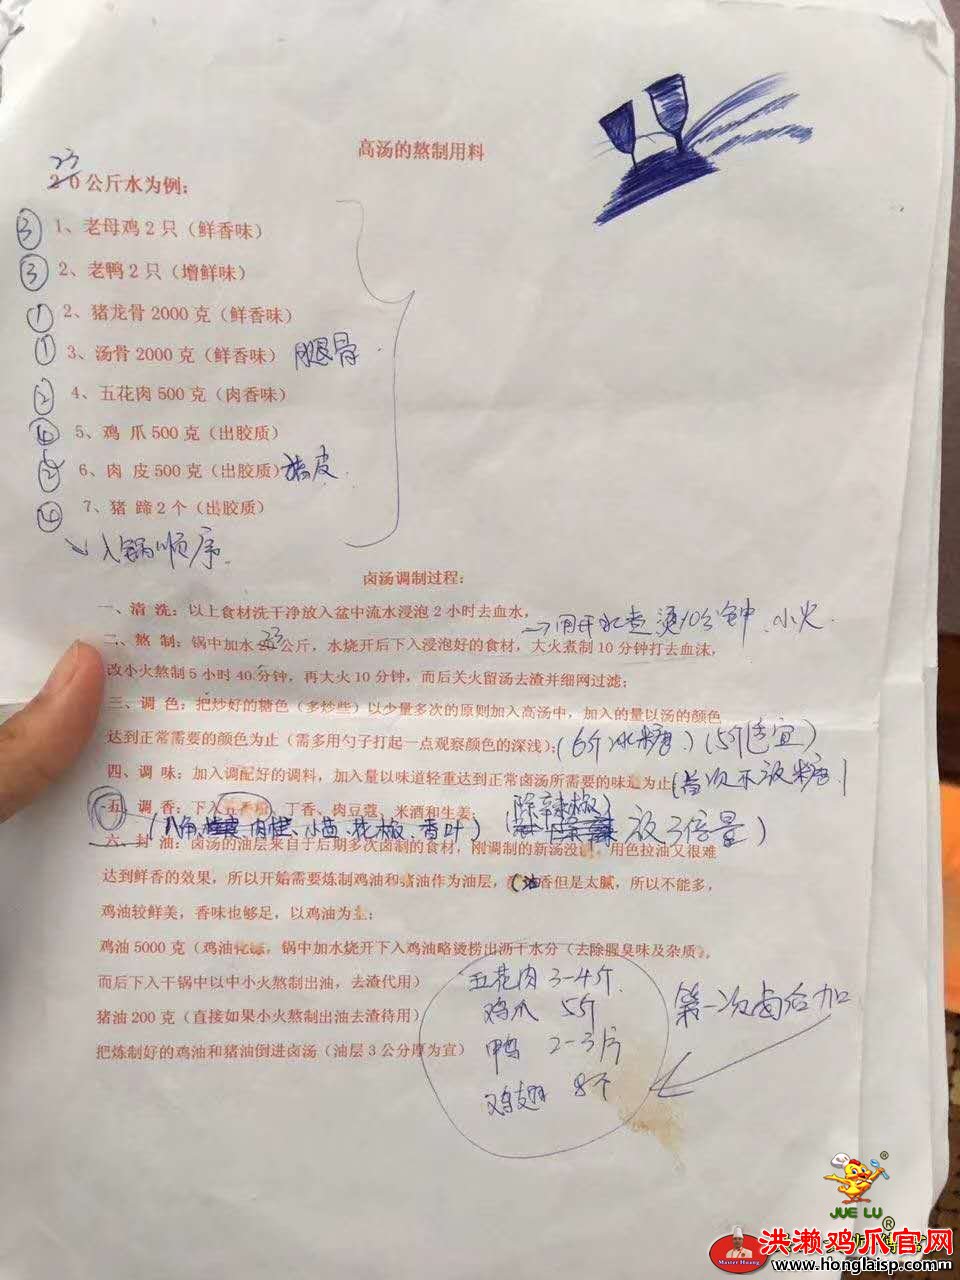 高汤的熬制用料
23
20公斤水为例：
③ 1、老母鸡2只（鲜香味）
③ 2、老鸭2只（增鲜味）
① 2、猪龙骨2000克（鲜香味）
① 3、汤骨2000克（鲜香味） 腿骨
② 4、五花肉500克（肉香味）
④ 5、鸡 爪500克（出胶质）
② 6、肉 皮500克（出胶质）猪皮
④ 7、猪 蹄2个（出胶质）
入锅顺序
卤汤调制过程：
一、清 洗：以上食材洗干净放入盆中流水浸泡2小时去血水，
→用开水煮烫10分钟、小火
二、熬 制：锅中加水23公斤，水烧开后下入浸泡好的食材，大火煮制10分钟打去血沫，
改小火熬制5小时40分钟，再大火10分钟，而后关火留汤去渣并细网过滤；
三、调 色：把炒好的糖色（多炒些）以少量多次的原则加入高汤中，加入的量以汤的颜色
达到正常需要的颜色为止（需多用勺子打起一点观察颜色的深浅）；（6斤冰糖）（5斤适宜）
四、调 味：加入调配好的调料，加入量以味道轻重达到正常卤汤所需要的味道为止（首次不放糖）
五、调 香：下入 丁香、肉豆蔻、米酒和生姜；
（八角、肉桂、小茴、花椒、香叶）（除辣椒 放3倍量）
六、封 油：卤汤的油层来自于后期多次卤制的食材，刚调制的新汤没油，用色拉油又很难
达到鲜香的效果，所以开始需要炼制鸡油和猪油作为油层，油香但是太腻，所以不能多，
鸡油较鲜美，香味也够足，以鸡油为主；
鸡油5000克（鸡油化冻，锅中加水烧开下入鸡油略烫捞出沥干水分（去除腥臭味及杂质），
而后下入干锅中以中小火熬制出油，去渣代用）
猪油200克（直接如果小火熬制出油去渣待用）
把炼制好的鸡油和猪油倒进卤汤（油层3公分厚为宜）
五花肉 3-4斤
鸡爪 5斤
鸭 2-3片
鸡翅 8个
第一次卤后加
JUE LU
®
®
Master Huang
洪濑鸡爪官网
www.honglaisp.com